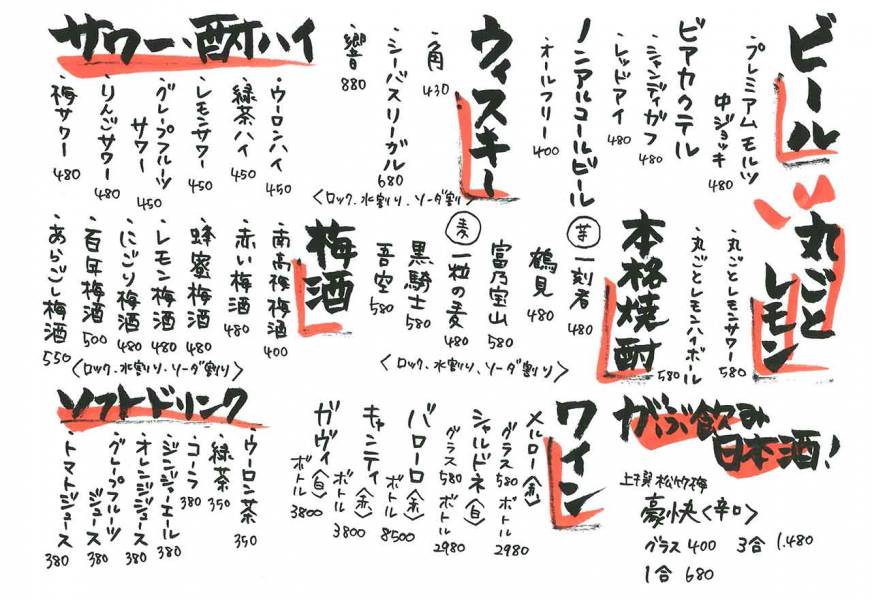 ビール
プレミアムモルツ
中ジョッキ 480
ビアカクテル
シャンディガフ 480
・レッドアイ 480
ノンアルコールビール
・オールフリー 400
ウィスキー
・角 430
・シーバスリーガル 680
・響 880
〈ロック、水割り、ソーダ割り〉
サワー・酎ハイ
・ウーロンハイ 450
・緑茶ハイ 450
・グレープフルーツ
サワー 450
・レモンサワー 450
・りんごサワー 480
・梅サワー 480
丸ごと
レモン
・丸ごとレモンサワー 580
・丸ごとレモンハイボール 580
本格焼酎
芋
一刻者 480
鶴見 480
富乃宝山 580
麦
一粒の麦 480
黒騎士 580
吾空 580
〈ロック、水割り、ソーダ割り〉
梅酒
・南高梅梅酒 400
・赤い梅酒 480
・蜂蜜梅酒 480
・レモン梅酒 480
・にごり梅酒 480
・百年梅酒 500
・あらごし梅酒 550
〈ロック、水割り、ソーダ割り〉
がぶ飲み
日本酒!
上撰松竹梅
豪快〈辛口〉
グラス 400 3合 1.480
1合 680
ワイン
メルロー〈赤〉
グラス 580 ボトル 2980
シャルドネ〈白〉
グラス 580 ボトル 2980
バローロ〈赤〉
ボトル 8500
キャンティ〈赤〉
ボトル 3800
ガヴィ〈白〉
ボトル 3800
ソフトドリンク
・ウーロン茶 350
・緑茶 350
・コーラ 380
・ジンジャーエール 380
・オレンジジュース 380
・グレープフルーツ
ジュース 380
・トマトジュース 380